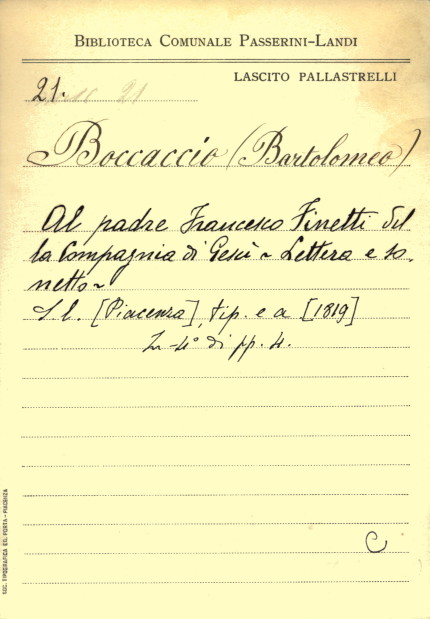 BIBLIOTECA COMUNALE PASSERINI-LANDI
LASCITO PALLASTRELLI
21.
Boccaccio (Bartolomeo)
Al padre Francesco Finetti del
la Compagnia di Gesù ~ Lettera e so.
netto ~
S. l. [Piacenza], tip. e a [1819]
In-4° di pp. 4.
C
SOC. TIPOGRAFICA ED. PORTA - PIACENZA